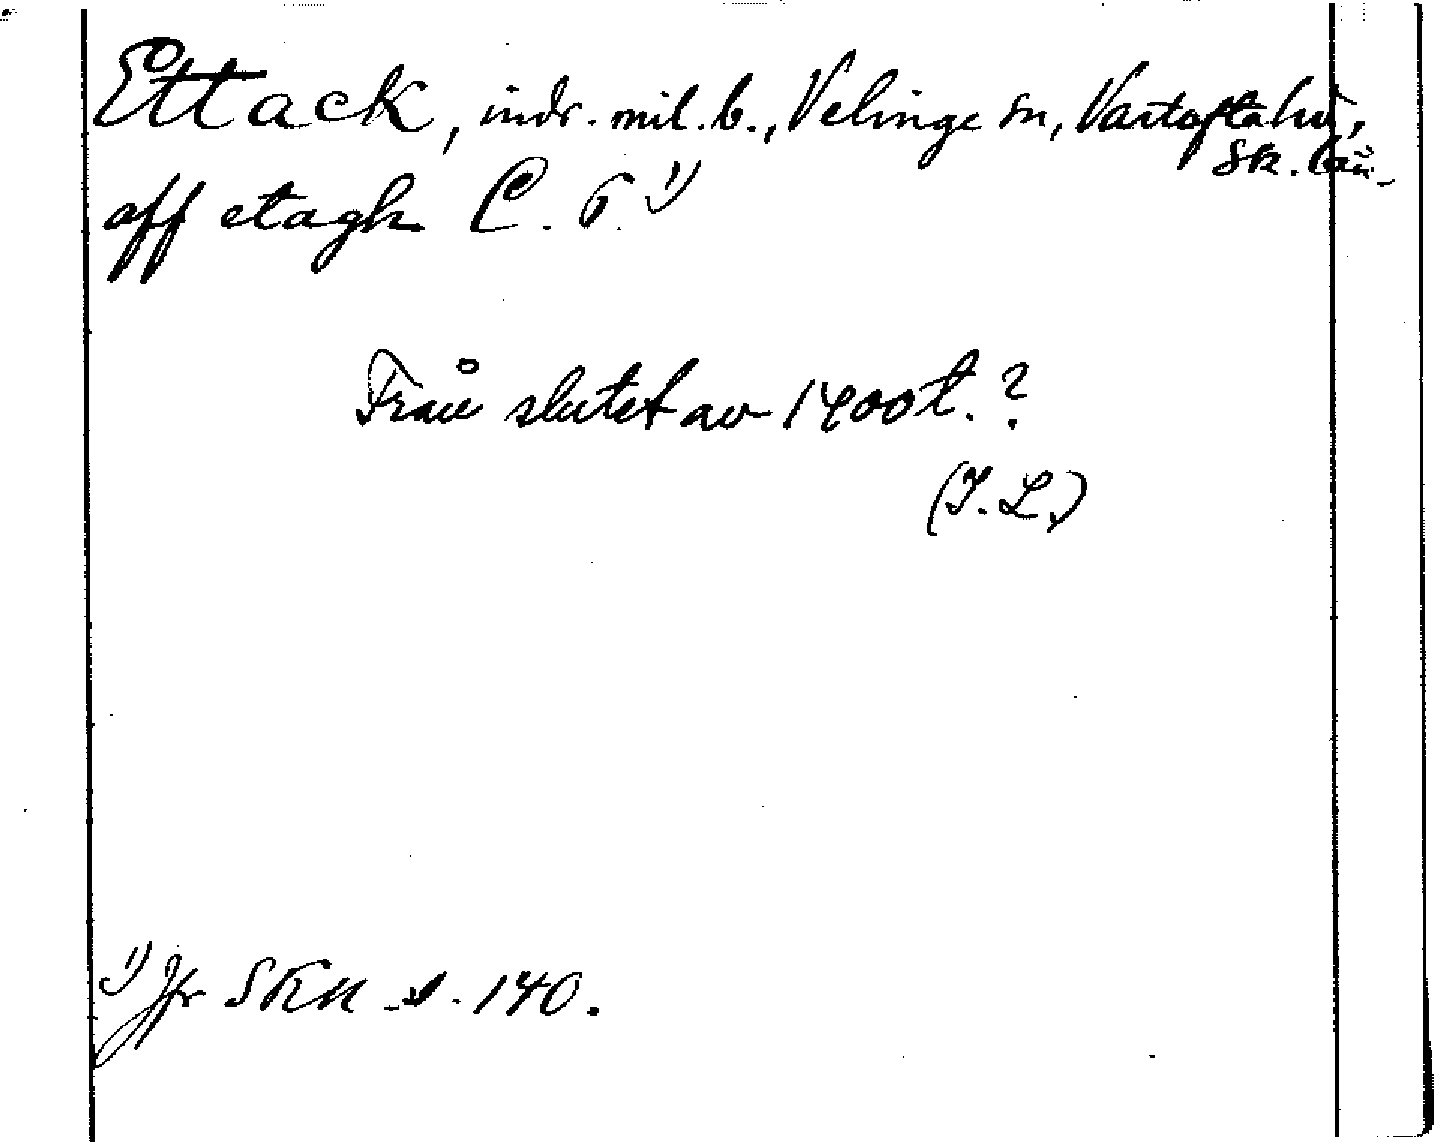 Ettack, indr. mil. b., Velinge sn, Vartofta hd,
Sk. län.
aff etagh C. 6. 1)
Från slutet av 1400 t. ?
(I. L.)
1) Jfr SKH s. 140.